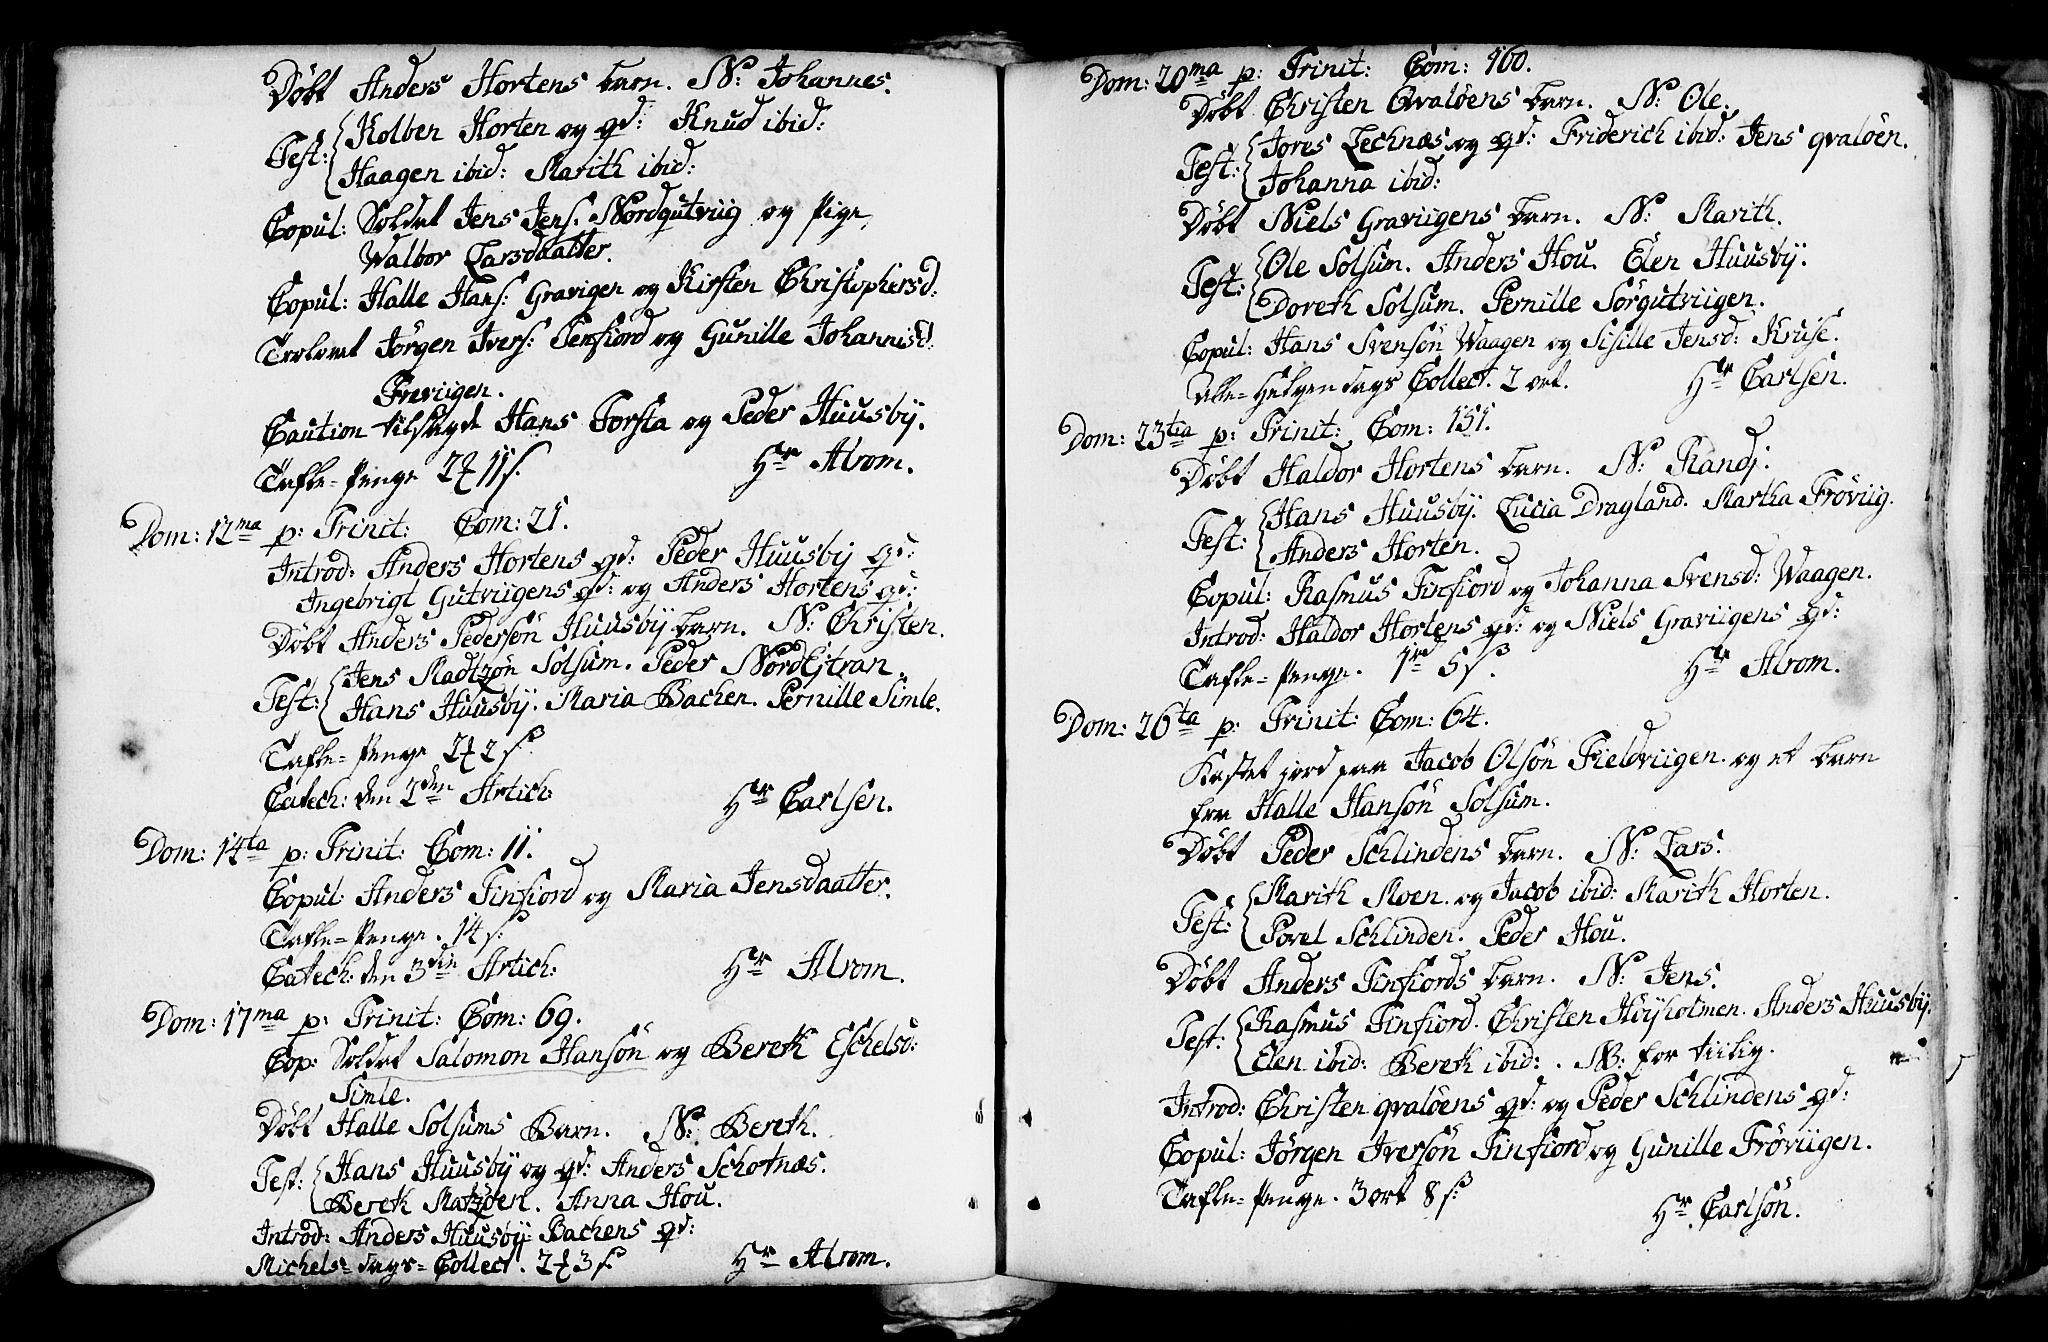 Døbt Anders Hortens barn. N: Johannes.
Test: Kolben Horten og qd: Knud ibid:
Haagen ibid: Marith ibid:
Copul: Soldat Jens Jens: Nordgutviig og Pige
Walbor Larsdaatter.
Copul: Halle Hans: Graviigen og Kirsten Christophersd:
Trolovet Jørgen Ivers: Finfiord og Gunille Johannisd:
Frøviigen.
Caution tilsagde Hans Forsta og Peder Huusbÿ.
Tafle-Penge 2 11 s.
Hr Alrom.
Dom: 12ma p: Trinit: Com: 21.
Introd: Anders Hortens qd: Peder Huusbÿ qd:
Ingebrigt Gutviigens qd: og Anders Hortens qd:
Døbt Anders Pedersøn Huusbÿ barn. N: Christen.
Test: Jens Madtzøn Solsum. Peder Nordhjtran.
Hans Huusbÿ. Maria Bachen. Pernille Simle.
Tafle-Penge 2 2 s.
Catech: den 2den Artich:
Hr Carlsen.
Dom: 14ta p: Trinit: Com: 11.
Copul: Anders Finfiord og Maria Jensdaatter.
Tafle-Penge. 14 s:
Catech: den 3die Artich:
Hr Alrom.
Dom: 17ma p: Trinit: Com: 69.
Cop: Soldat Salomon Hansøn og Bereth Eschelsd:
Simle.
Døbt Halle Solsums Barn. N: Bereth.
Test: Hans Huusbÿ og qd: Anders Schotnæs.
Bereth Matzøen. Anna Hou.
Introd: Anders Huusbÿ Bachens qd:
Michels-dags-Collect. 2 3 s
Hr Alrom.
Dom: 20ma p: Trinit: Com: 160.
Døbt Christen Qvaløens barn. N: Ole.
Test: Jores Lechnæs og qd: Friderich ibid: Jens qvaløen.
Johanna ibid:
Døbt Niels Graviigens barn. N: Marith.
Test: Ole Solsum. Anders Hou. Elen Huusbÿ.
Doreth Solsum. Pernille Sørgutviigen.
Copul: Hans Svensøn Waagen og Sisille Jensd: Kruse.
Alle-Helgen dags Collect. 2 ort.
Hr Carlsen.
Dom: 23tia p: Trinit: Com: 151.
Døbt Haldor Hortens barn. N: Randj.
Test: Hans Huusbÿ. Lucia Dragland. Martha Frøviig.
Anders Horten.
Copul: Rasmus Finfiord og Johanna Svensd: Waagen.
Introd: Haldor Hortens qd: og Niels Graviigens qd:
Tafle-Penge. 1rd 5 s.
Hr Alrom.
Dom: 26ta p: Trinit: Com: 64.
Kastet jord paa Jacob Olsøn Fieldviigen. og et barn
fra Halle Hansøn Solsum.
Døbt Peder Schlindens barn. N: Lars.
Test: Marith Moen. og Jacob ibid: Marith Horten.
Povel Schlinden. Peder Hou.
Døbt Anders Finfiords barn. N: Jens.
Test: Rasmus Finfiord. Christen Høÿholmen. Anders Huusbÿ.
Elen ibid: Bereth ibid: . NB: for tiilig.
Introd: Christen qvaløens qd: og Peder Schlindens qd:
Copul: Jørgen Iversøn Finfiord og Gunille Frøviigen.
Tafle-Penge. 3 ort 8 s:
Hr Carlsøn.